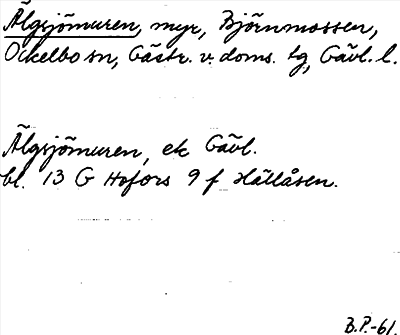 Älgsjömuren, myr, Björnmossen,
Ockelbo sn, Gästr. v. doms. tg, Gävl. l.
Älgsjömuren, ek Gävl.
bl. 13 G Hofors 9 f Hällåsen.
B.P.-61.